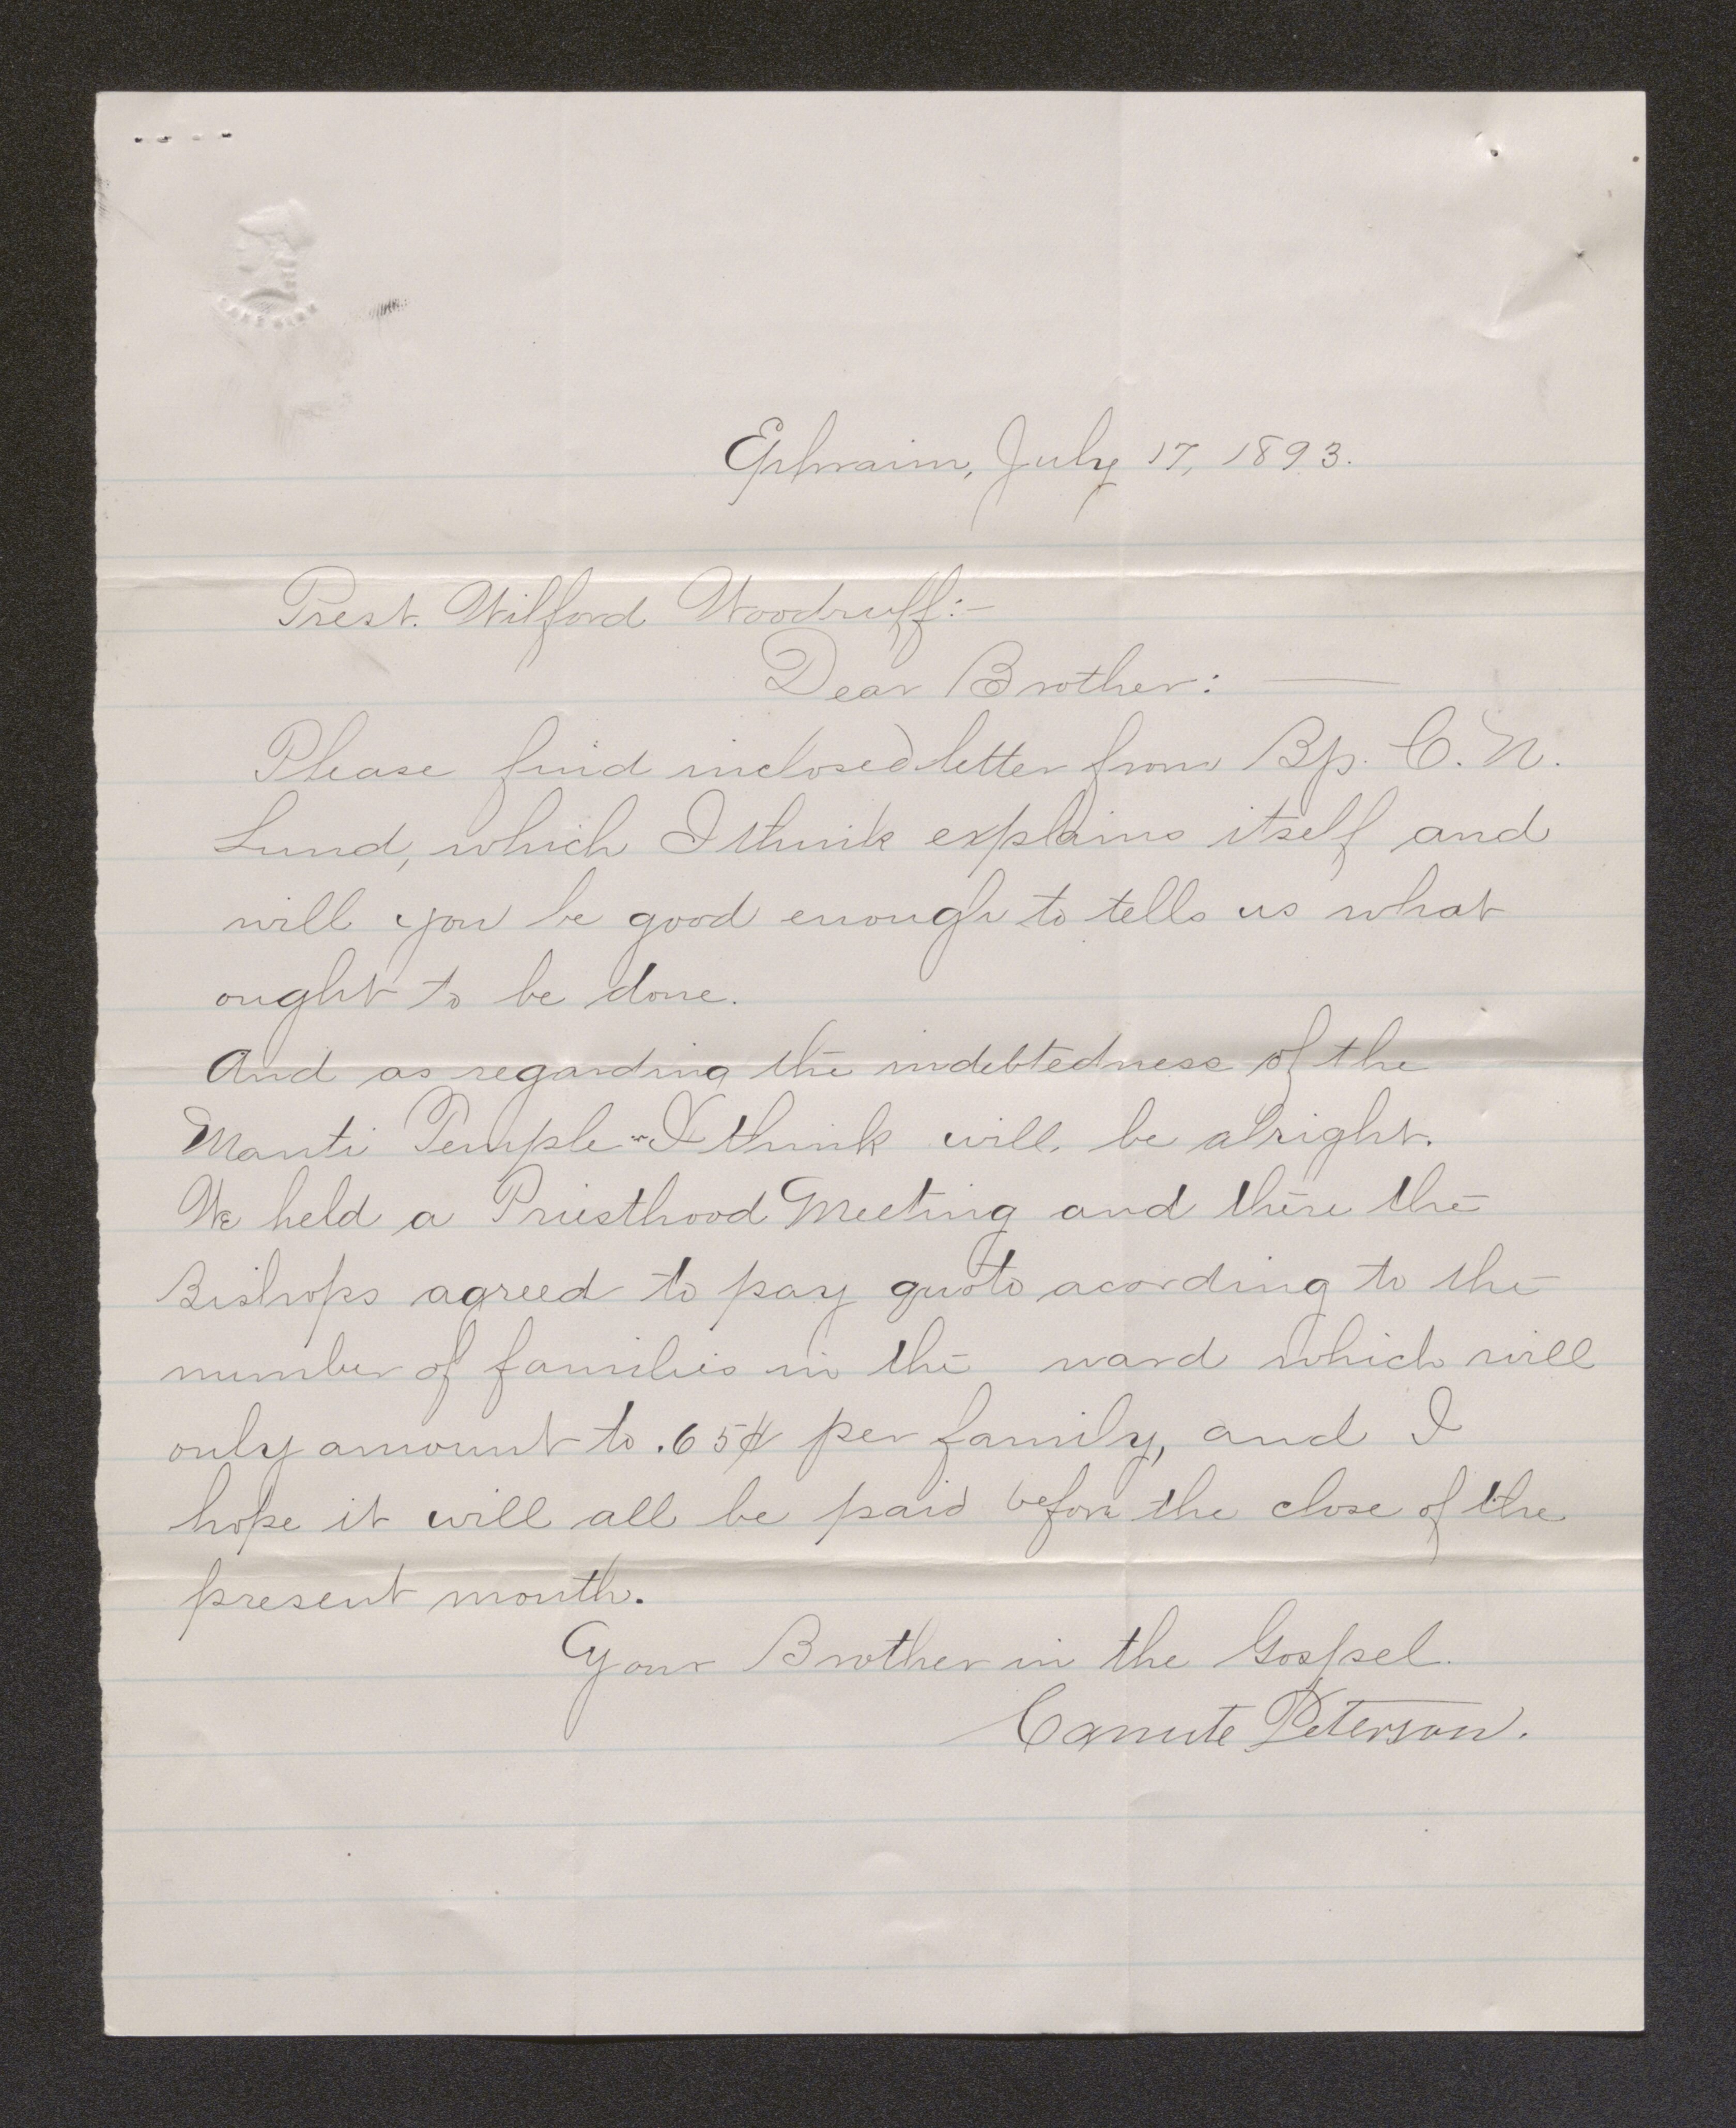 Ephraim, July 17, 1893.
Prest. Wilford Woodruff:-
Dear Brother: —
Please find inclosed letter from Bp. C. N.
Lund, which I think explains itself and
will you be good enough to tells us what
ought to be done.
And as regarding the indebtedness of the
Manti Temple - I think will be alright.
We held a Priesthood Meeting and there the
Bishops agreed to pay quoto acording to the
number of families in the ward which will
only amount to .65¢ per family, and I
hope it will all be paid before the close of the
present month.
Your Brother in the Gospel.
Canute Peterson.